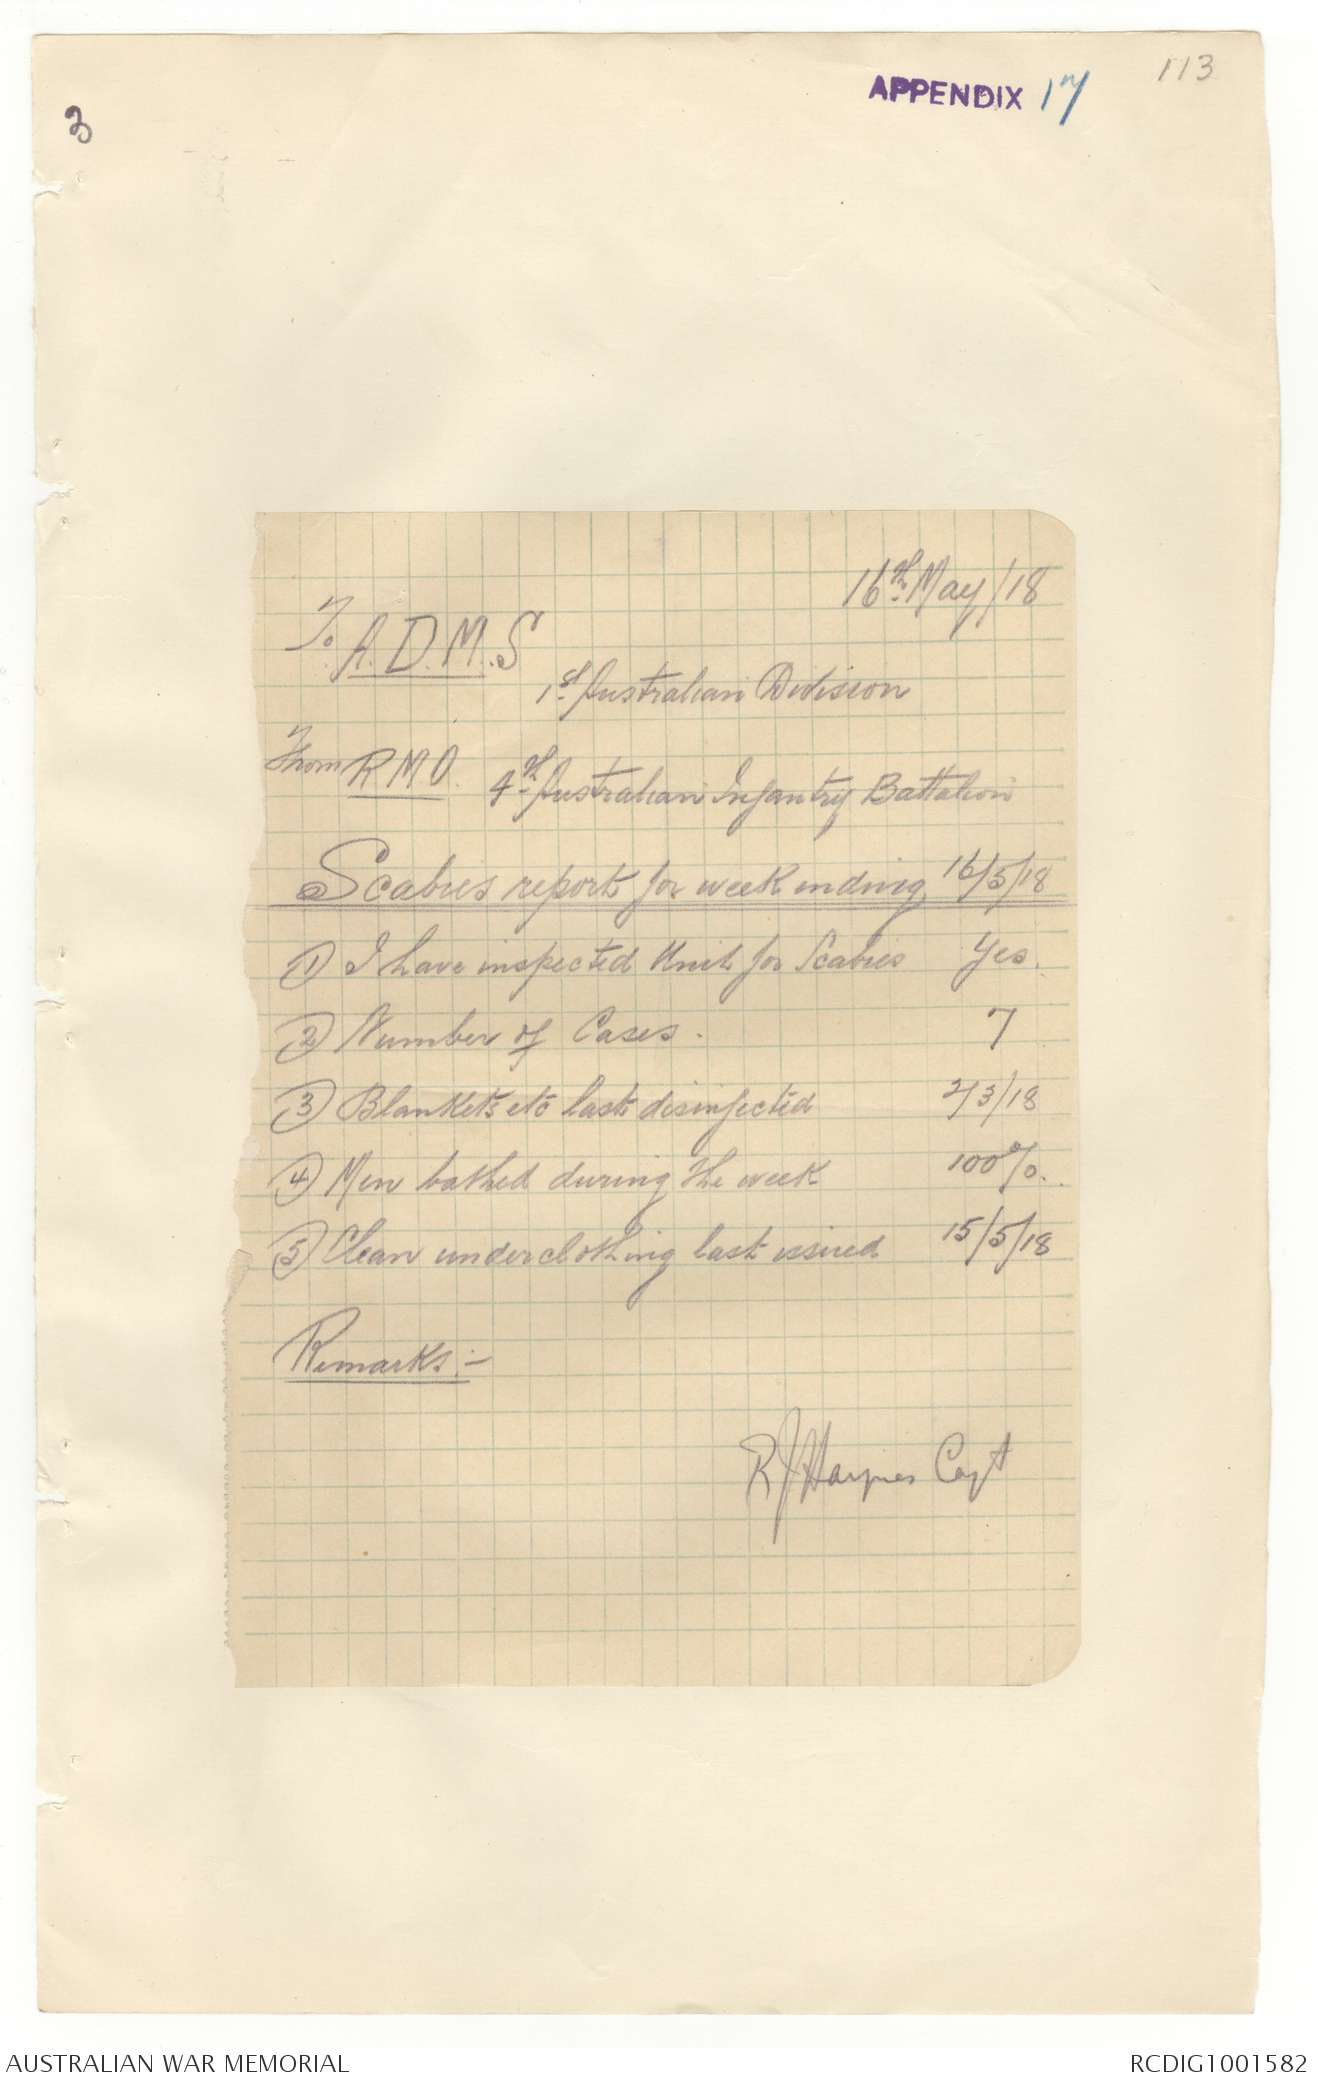 113
APPENDIX 17
3
16th May/18
To A.D.M.S
1st Australian Division
From R.M.O. 4th Australian Infantry Battalion
Scabies report for week ending 16/5/18
(1) I have inspected Unit for Scabies Yes.
(2) Number of Cases. 7
(3) Blankets etc last disinfected 2/3/18
(4) Men bathed during the week 100%.
(5) Clean underclothing last issued 15/5/18
Remarks:-
R J Capt
AUSTRALIAN WAR MEMORIAL
RCDIG1001582